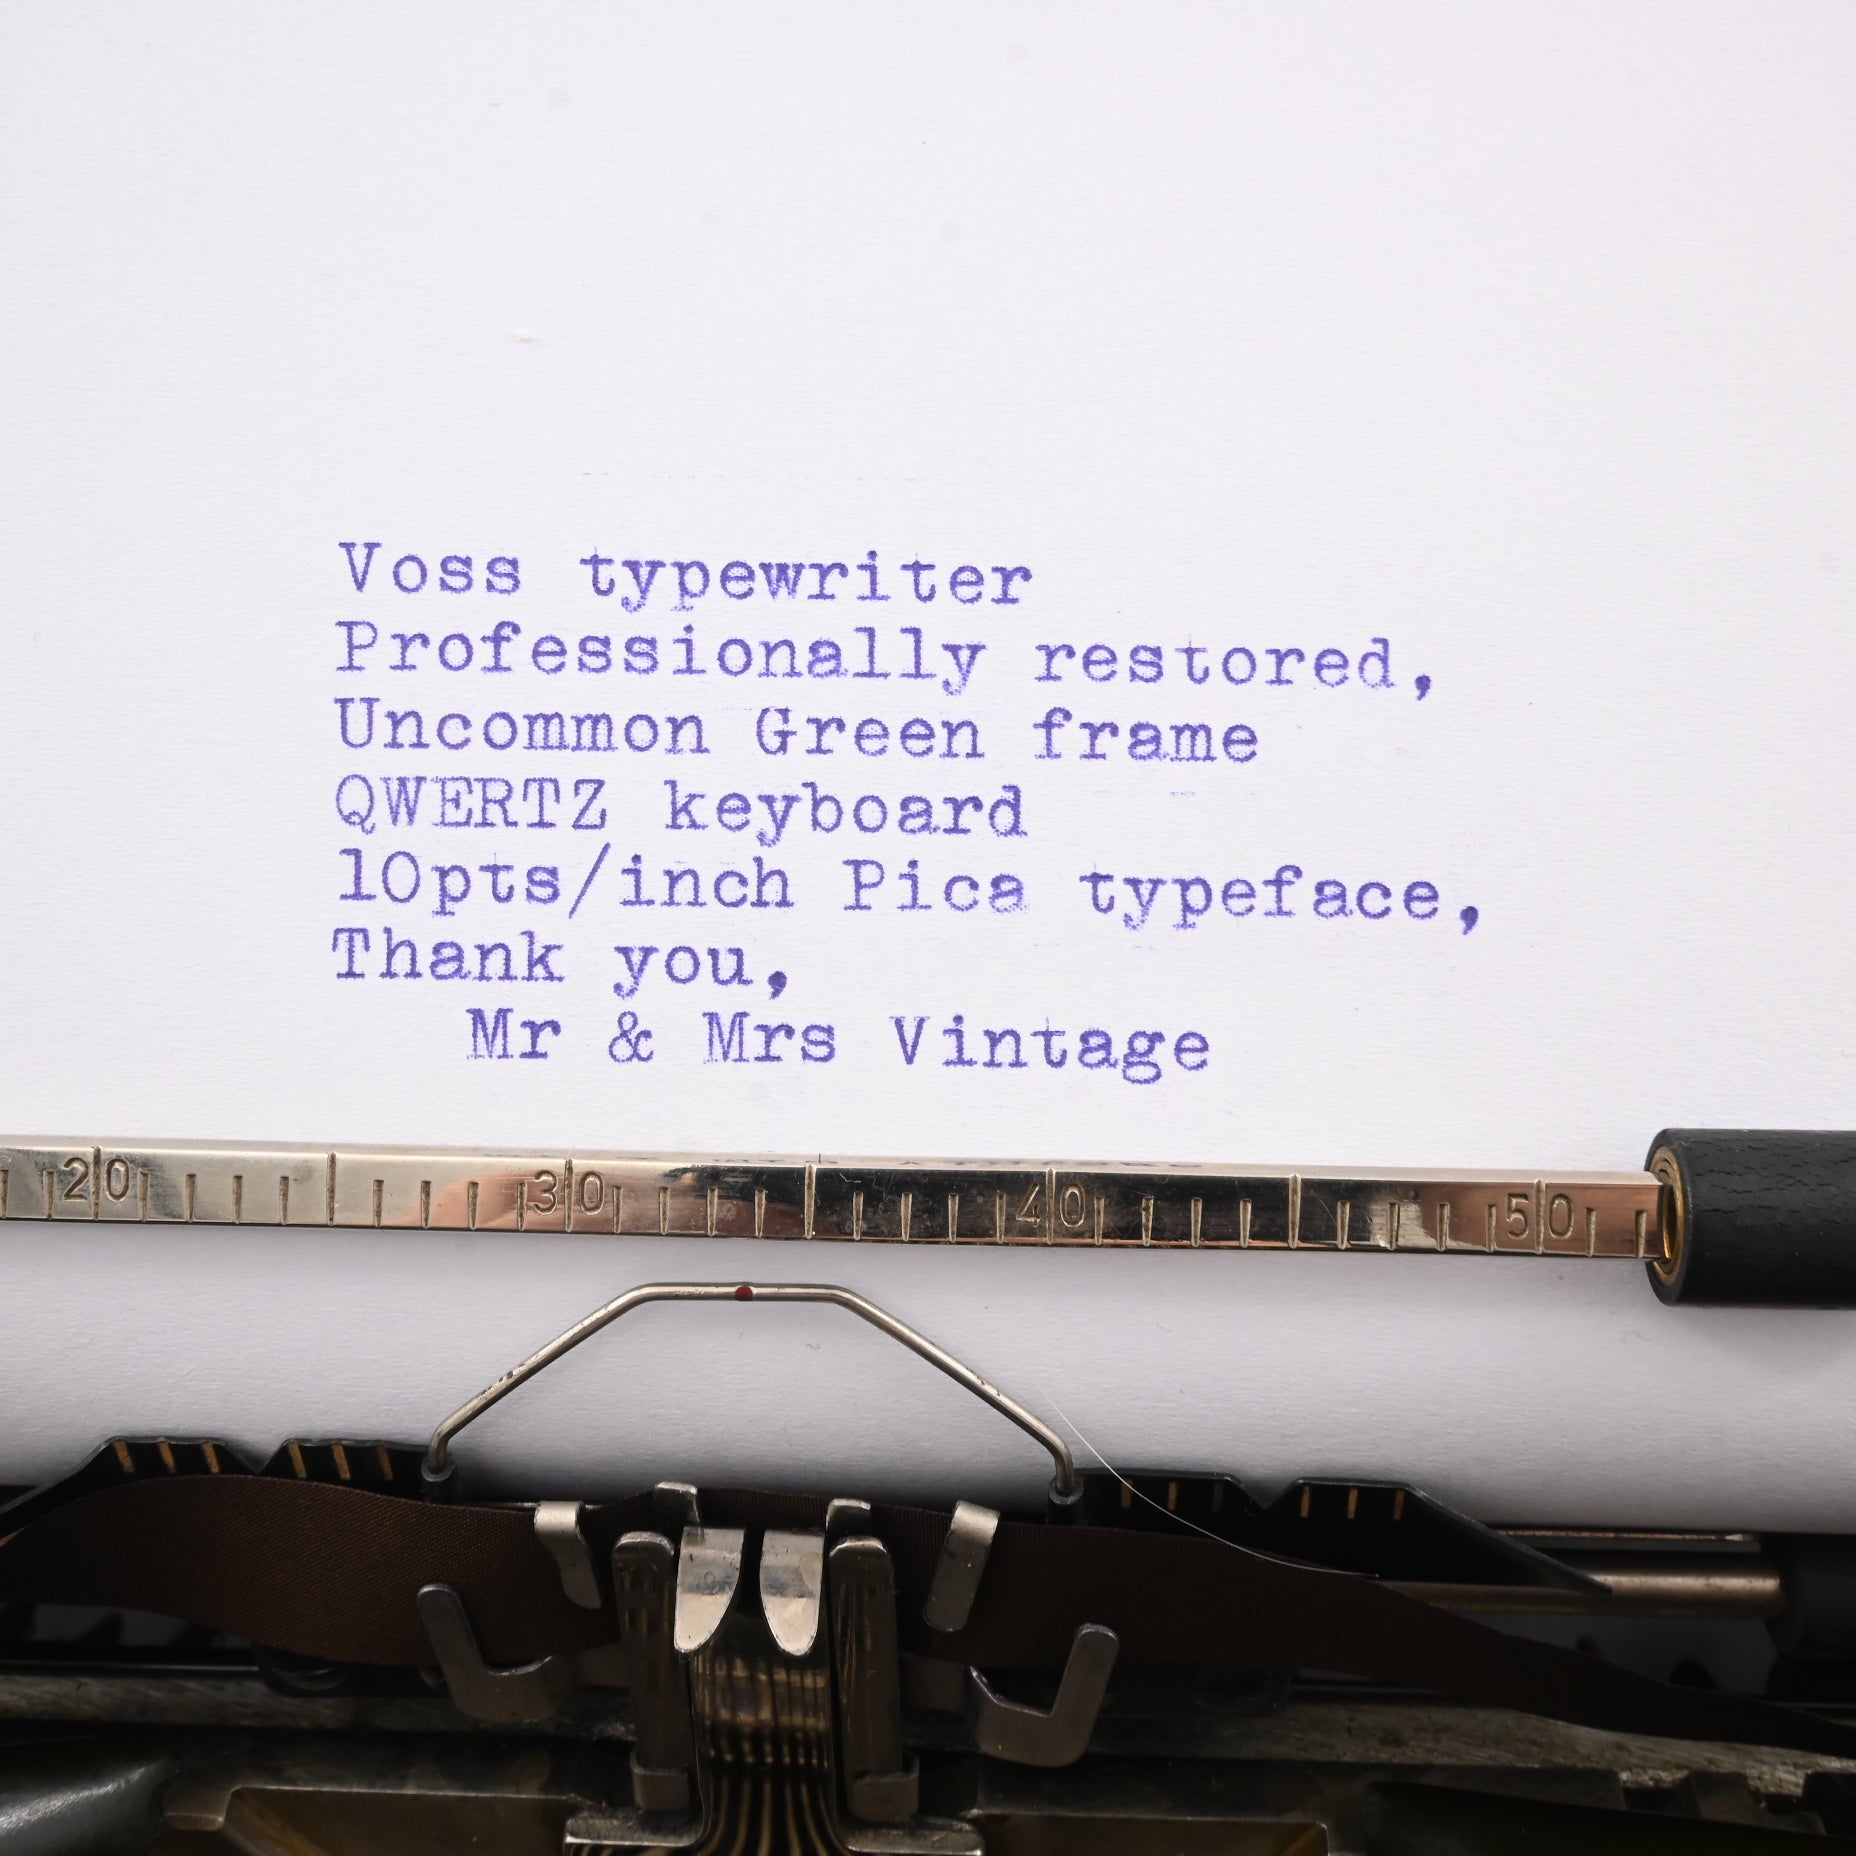 Voss typewriter
Professionally restored,
Uncommon Green frame
QWERTZ keyboard
10pts/inch Pica typeface,
Thank you,
Mr & Mrs Vintage
20 30 40 50